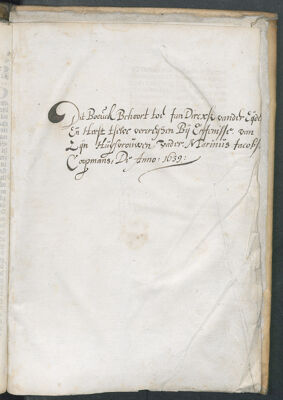 Dit Boeck Behoort toe Jan Dircxss vander Eijde
En Heeft tselve vercregen Bij Erffenisse van
Zijn Huijsvrouwen vader Marinus Jacobss
Coopmans, De Anno: 1639: